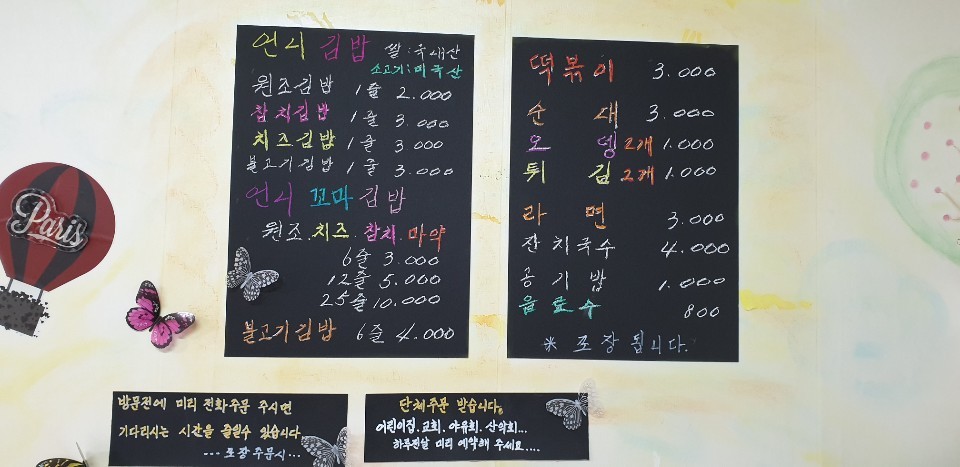 언니 김밥 쌀:국내산
소고기:미국산
원조김밥 1줄 2.000
참치김밥 1줄 3.000
치즈김밥 1줄 3.000
불고기김밥 1줄 3.000
언니 꼬마김밥
원조.치즈.참치.마약
6줄 3.000
12줄 5.000
25줄 10.000
불고기김밥 6줄 4.000
떡볶이 3.000
순대 3.000
오뎅 2개 1.000
튀김 2개 1.000
라면 3.000
잔치국수 4.000
공기밥 1.000
음료수 800
※ 포장됩니다.
Paris
방문전에 미리 전화주문 주시면
기다리시는 시간을 줄일수 있습니다
--- 포장주문시...
단체주문 받습니다.
어린이집.교회.야유회.산악회...
하루전날 미리 예약해 주세요....